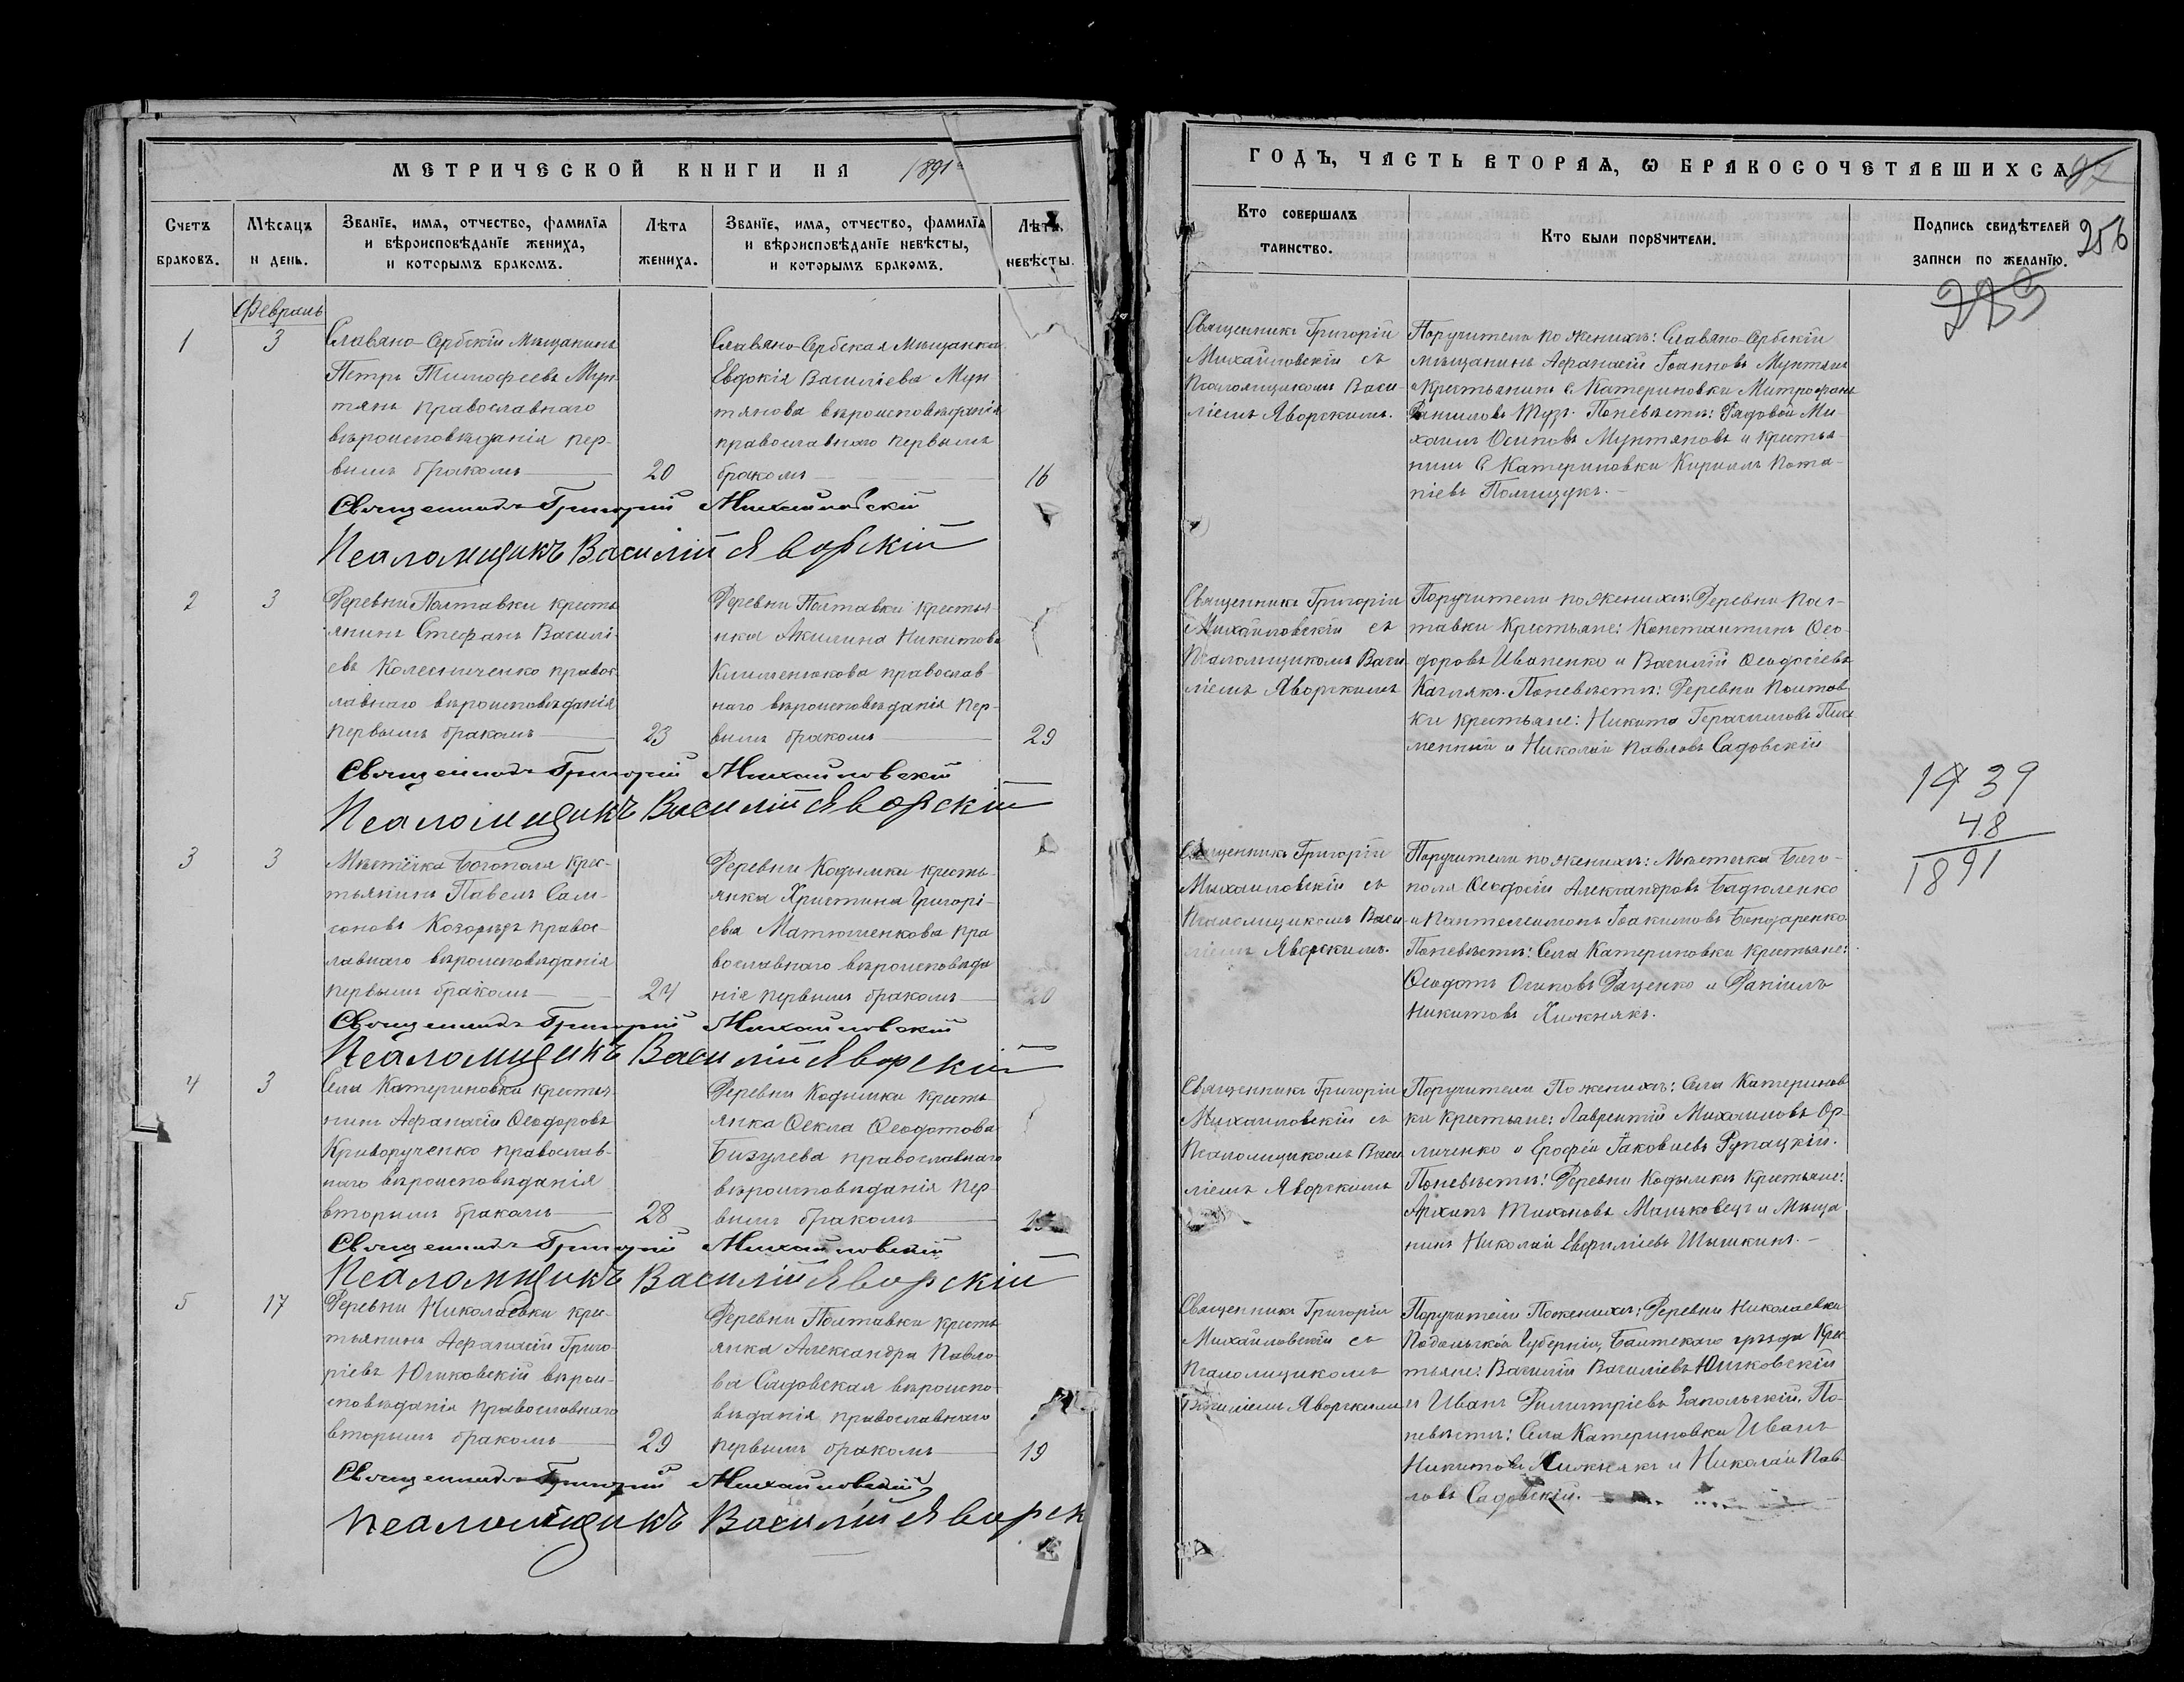 МЕТРИЧЕСКОЙ КНИГИ НА 1891
Счетъ браковъ.
Мѣсяцъ и день.
Званїе, имя, отчество, фамилїя и вѣроисповѣданїе жениха, и которымъ бракомъ.
Лѣта жениха.
Званїе, имя, отчество, фамилїя и вѣроисповѣданїе невѣсты, и которымъ бракомъ.
Лѣта невѣсты.
Февраль
1
3
Славяно-Сербскій Мѣщанинъ
Петръ Тимофеевъ Мун-
тянъ православнаго
вѣроисповѣданія пер-
вымъ бракомъ
20
Славяно-Сербская Мѣщанка
Евдокія Василіева Мун
тянова вѣроисповѣданія
православнаго первымъ
бракомъ
16
Священникъ Григорій Михайловскій
Псаломщикъ Василій Яворскій
2
3
Деревни Полтавки кресть
янинъ Стефанъ Василі-
евъ Колесниченко правос-
лавнаго вѣроисповѣданія
первымъ бракомъ
23
Деревни Полтавки крестья-
нка Акилина Никитова
православ
наго вѣроисповѣданія пер-
вымъ бракомъ
29
Священникъ Григорій Михайловскій
Псаломщикъ Василій Яворскій
3
3
Мѣстечка Богополя крес-
тьянинъ Павелъ Сам-
соновъ правос-
лавнаго вѣроисповѣданія
первымъ бракомъ
24
Деревни Кодымки кресть-
янка Христина Григорі-
ева Матюшенкова пра
вославнаго вѣроисповѣда
нія первымъ бракомъ
20
Священникъ Григорій Михайловскій
Псаломщикъ Василій Яворскій
4
3
Села Катериновки крестья-
нинъ Афанасій Ѳеодоровъ
Криворученко православ-
наго вѣроисповѣданія
вторымъ бракомъ
28
Деревни Кодымки кресть-
янка Ѳекла Ѳеодотова
Бизулева православнаго
вѣроисповѣданія пер-
вымъ бракомъ
Священникъ Григорій Михайловскій
Псаломщикъ Василій Яворскій
5
17
Деревни Николаевки крес-
тьянинъ Афанасій Григо-
ріевъ Юшковскій вѣрои-
сповѣданія православнаго
вторымъ бракомъ
29
Деревни Полтавки кресть
янка Александра Павло-
ва Садовская вѣроиспо-
вѣданія православнаго
первымъ бракомъ
19
Священникъ Григорій Михайловскій
Псаломщикъ Василій Яворск
ГОДЪ, ЧАСТЬ ВТОРАЯ, Ѡ БРАКОСОЧЕТАВШИХСЯ
97
256
Кто совершалъ таинство.
Кто были поручители.
Подпись свидѣтелей записи по желанїю.
Священникъ Григорій
Михайловскій съ
Псаломщикомъ Васи-
ліемъ Яворскимъ.
Поручители по женихѣ: Славяно-Сербскій
мѣщанинъ Афанасій Іоанновъ Мунтянъ
и Крестьянинъ С. Катериновки Митрофанъ
Даниловъ Тузъ. По невѣстѣ: Рядовой Ми-
хаилъ Осиповъ Мунтяновъ и крестья-
нинъ С. Катериновки Кириллъ Пота-
піевъ Полищукъ.
Священникъ Григорій
Михайловскій съ
Псаломщикомъ Васи-
ліемъ Яворскимъ
Поручители по женихѣ: Деревни Пол-
тавки Крестьяне: Константинъ Ѳео-
доровъ Иваненко и Василій Ѳеодосіевъ
По невѣстѣ: Деревни Полтав-
ки крестьяне: Никита Герасимовъ
и Николай Павловъ Садовскій
19 39
48
1891
Священникъ Григорій
Михайловскій съ
Псаломщикомъ Васи-
ліемъ Яворскимъ.
Поручители по женихѣ: Мѣстечка Бого-
поля Ѳеодосій Александровъ Бадюленко
и Пантелеимонъ Іоакимовъ Бондаренко.
По невѣстѣ: Села Катериновки крестьяне:
Ѳеодотъ Осиповъ Даценко и Даніилъ
Никитовъ Хижнякъ.
Священникъ Григорій
Михайловскій съ
Псаломщикомъ Васи
ліемъ Яворскимъ
Поручители По женихѣ: Села Катеринов
ки крестьяне: Лаврентій Михаиловъ Ор-
личенко и Ерофій Іаковлевъ Рупацкій.
По невѣстѣ: Деревни Кодымки Крестьяне:
Архипъ Тихоновъ Маньковецъ и Мѣща
нинъ Николай Евфиміевъ Шишкинъ.
Священникъ Григорій
Михайловскій съ
Псаломщикомъ
Василіемъ Яворскимъ
Поручители По женихѣ: Деревни Николаевки
Подольской Губерніи, Балтскаго уѣзда Крес-
тьяне: Василій Василіевъ Юшковскій
и Иванъ Димитріевъ Запольскій. По
невѣстѣ: Села Катериновки Иванъ
Никитовъ Хижнякъ и Николай Пав-
ловъ Садовскій.